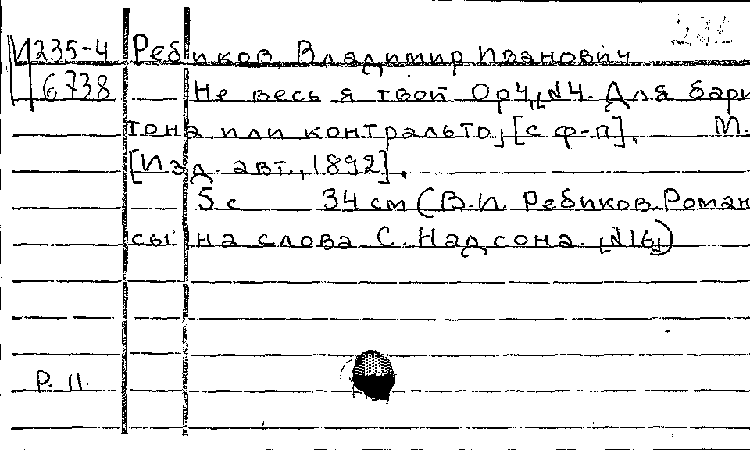 И235-4 Ребиков Владимир Иванович
6738 Не весь я твой Ор4, №4. Для бари
тона или контральто, [с ф-п]. М.
[Изд. авт., 1892].
5 с 34 см (В.И. Ребиков. Роман
сы на слова С. Надсона. №16)
Р. 11.